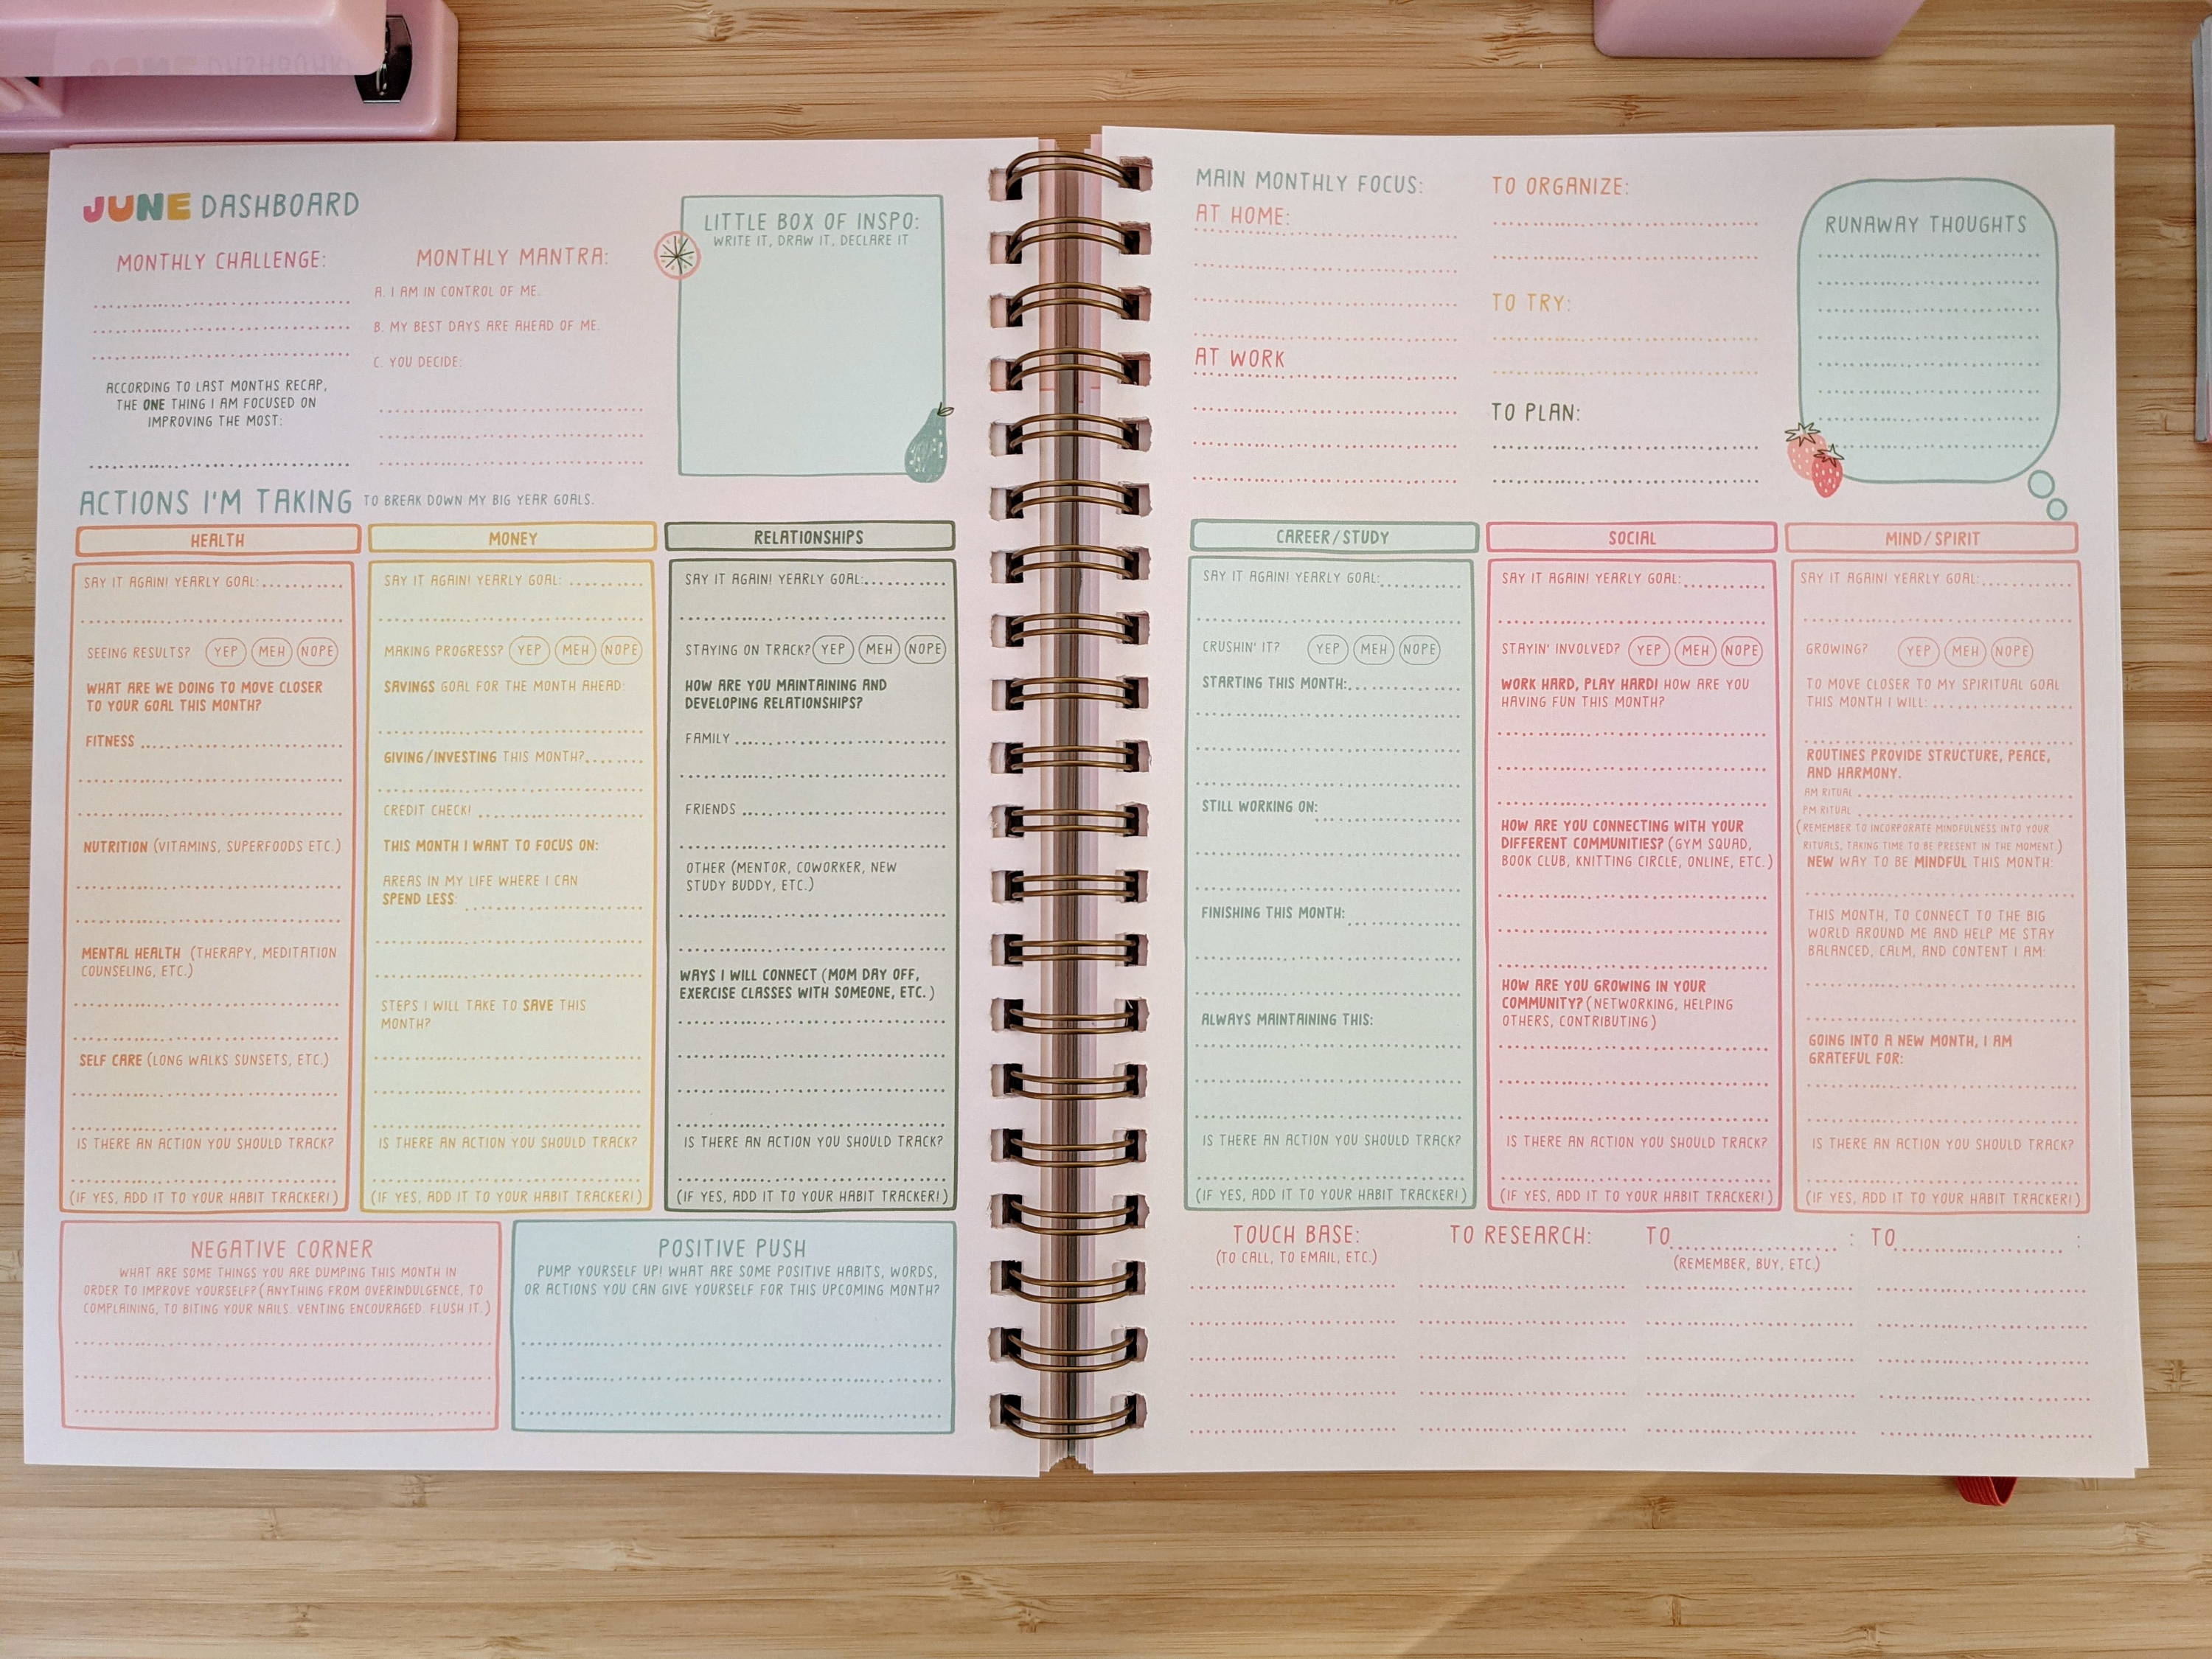 JUNE DASHBOARD
MONTHLY CHALLENGE:
ACCORDING TO LAST MONTHS RECAP,
THE ONE THING I AM FOCUSED ON
IMPROVING THE MOST:
MONTHLY MANTRA:
A. I AM IN CONTROL OF ME.
B. MY BEST DAYS ARE AHEAD OF ME.
C. YOU DECIDE:
LITTLE BOX OF INSPO:
WRITE IT, DRAW IT, DECLARE IT
ACTIONS I'M TAKING TO BREAK DOWN MY BIG YEAR GOALS.
HEALTH
SAY IT AGAIN! YEARLY GOAL:
SEEING RESULTS? YEP MEH NOPE
WHAT ARE WE DOING TO MOVE CLOSER
TO YOUR GOAL THIS MONTH?
FITNESS
NUTRITION (VITAMINS, SUPERFOODS ETC.)
MENTAL HEALTH (THERAPY, MEDITATION
COUNSELING, ETC.)
SELF CARE (LONG WALKS SUNSETS, ETC.)
IS THERE AN ACTION YOU SHOULD TRACK?
(IF YES, ADD IT TO YOUR HABIT TRACKER!)
MONEY
SAY IT AGAIN! YEARLY GOAL:
MAKING PROGRESS? YEP MEH NOPE
SAVINGS GOAL FOR THE MONTH AHEAD:
GIVING/INVESTING THIS MONTH?
CREDIT CHECK!
THIS MONTH I WANT TO FOCUS ON:
AREAS IN MY LIFE WHERE I CAN
SPEND LESS:
STEPS I WILL TAKE TO SAVE THIS
MONTH?
IS THERE AN ACTION YOU SHOULD TRACK?
(IF YES, ADD IT TO YOUR HABIT TRACKER!)
RELATIONSHIPS
SAY IT AGAIN! YEARLY GOAL:
STAYING ON TRACK? YEP MEH NOPE
HOW ARE YOU MAINTAINING AND
DEVELOPING RELATIONSHIPS?
FAMILY
FRIENDS
OTHER (MENTOR, COWORKER, NEW
STUDY BUDDY, ETC.)
WAYS I WILL CONNECT (MOM DAY OFF,
EXERCISE CLASSES WITH SOMEONE, ETC.)
IS THERE AN ACTION YOU SHOULD TRACK?
(IF YES, ADD IT TO YOUR HABIT TRACKER!)
NEGATIVE CORNER
WHAT ARE SOME THINGS YOU ARE DUMPING THIS MONTH IN
ORDER TO IMPROVE YOURSELF? (ANYTHING FROM OVERINDULGENCE, TO
COMPLAINING, TO BITING YOUR NAILS. VENTING ENCOURAGED. FLUSH IT.)
POSITIVE PUSH
PUMP YOURSELF UP! WHAT ARE SOME POSITIVE HABITS, WORDS,
OR ACTIONS YOU CAN GIVE YOURSELF FOR THIS UPCOMING MONTH?
MAIN MONTHLY FOCUS:
AT HOME:
AT WORK
TO ORGANIZE:
TO TRY:
TO PLAN:
RUNAWAY THOUGHTS
CAREER/STUDY
SAY IT AGAIN! YEARLY GOAL:
CRUSHIN' IT? YEP MEH NOPE
STARTING THIS MONTH:
STILL WORKING ON:
FINISHING THIS MONTH:
ALWAYS MAINTAINING THIS:
IS THERE AN ACTION YOU SHOULD TRACK?
(IF YES, ADD IT TO YOUR HABIT TRACKER!)
SOCIAL
SAY IT AGAIN! YEARLY GOAL:
STAYIN' INVOLVED? YEP MEH NOPE
WORK HARD, PLAY HARD! HOW ARE YOU
HAVING FUN THIS MONTH?
HOW ARE YOU CONNECTING WITH YOUR
DIFFERENT COMMUNITIES? (GYM SQUAD,
BOOK CLUB, KNITTING CIRCLE, ONLINE, ETC.)
HOW ARE YOU GROWING IN YOUR
COMMUNITY? (NETWORKING, HELPING
OTHERS, CONTRIBUTING)
IS THERE AN ACTION YOU SHOULD TRACK?
(IF YES, ADD IT TO YOUR HABIT TRACKER!)
MIND/SPIRIT
SAY IT AGAIN! YEARLY GOAL:
GROWING? YEP MEH NOPE
TO MOVE CLOSER TO MY SPIRITUAL GOAL
THIS MONTH I WILL:
ROUTINES PROVIDE STRUCTURE, PEACE,
AND HARMONY.
AM RITUAL
PM RITUAL
(REMEMBER TO INCORPORATE MINDFULNESS INTO YOUR
RITUALS, TAKING TIME TO BE PRESENT IN THE MOMENT.)
NEW WAY TO BE MINDFUL THIS MONTH:
THIS MONTH, TO CONNECT TO THE BIG
WORLD AROUND ME AND HELP ME STAY
BALANCED, CALM, AND CONTENT I AM:
GOING INTO A NEW MONTH, I AM
GRATEFUL FOR:
IS THERE AN ACTION YOU SHOULD TRACK?
(IF YES, ADD IT TO YOUR HABIT TRACKER!)
TOUCH BASE:
(TO CALL, TO EMAIL, ETC.)
TO RESEARCH:
TO :
(REMEMBER, BUY, ETC.)
TO :